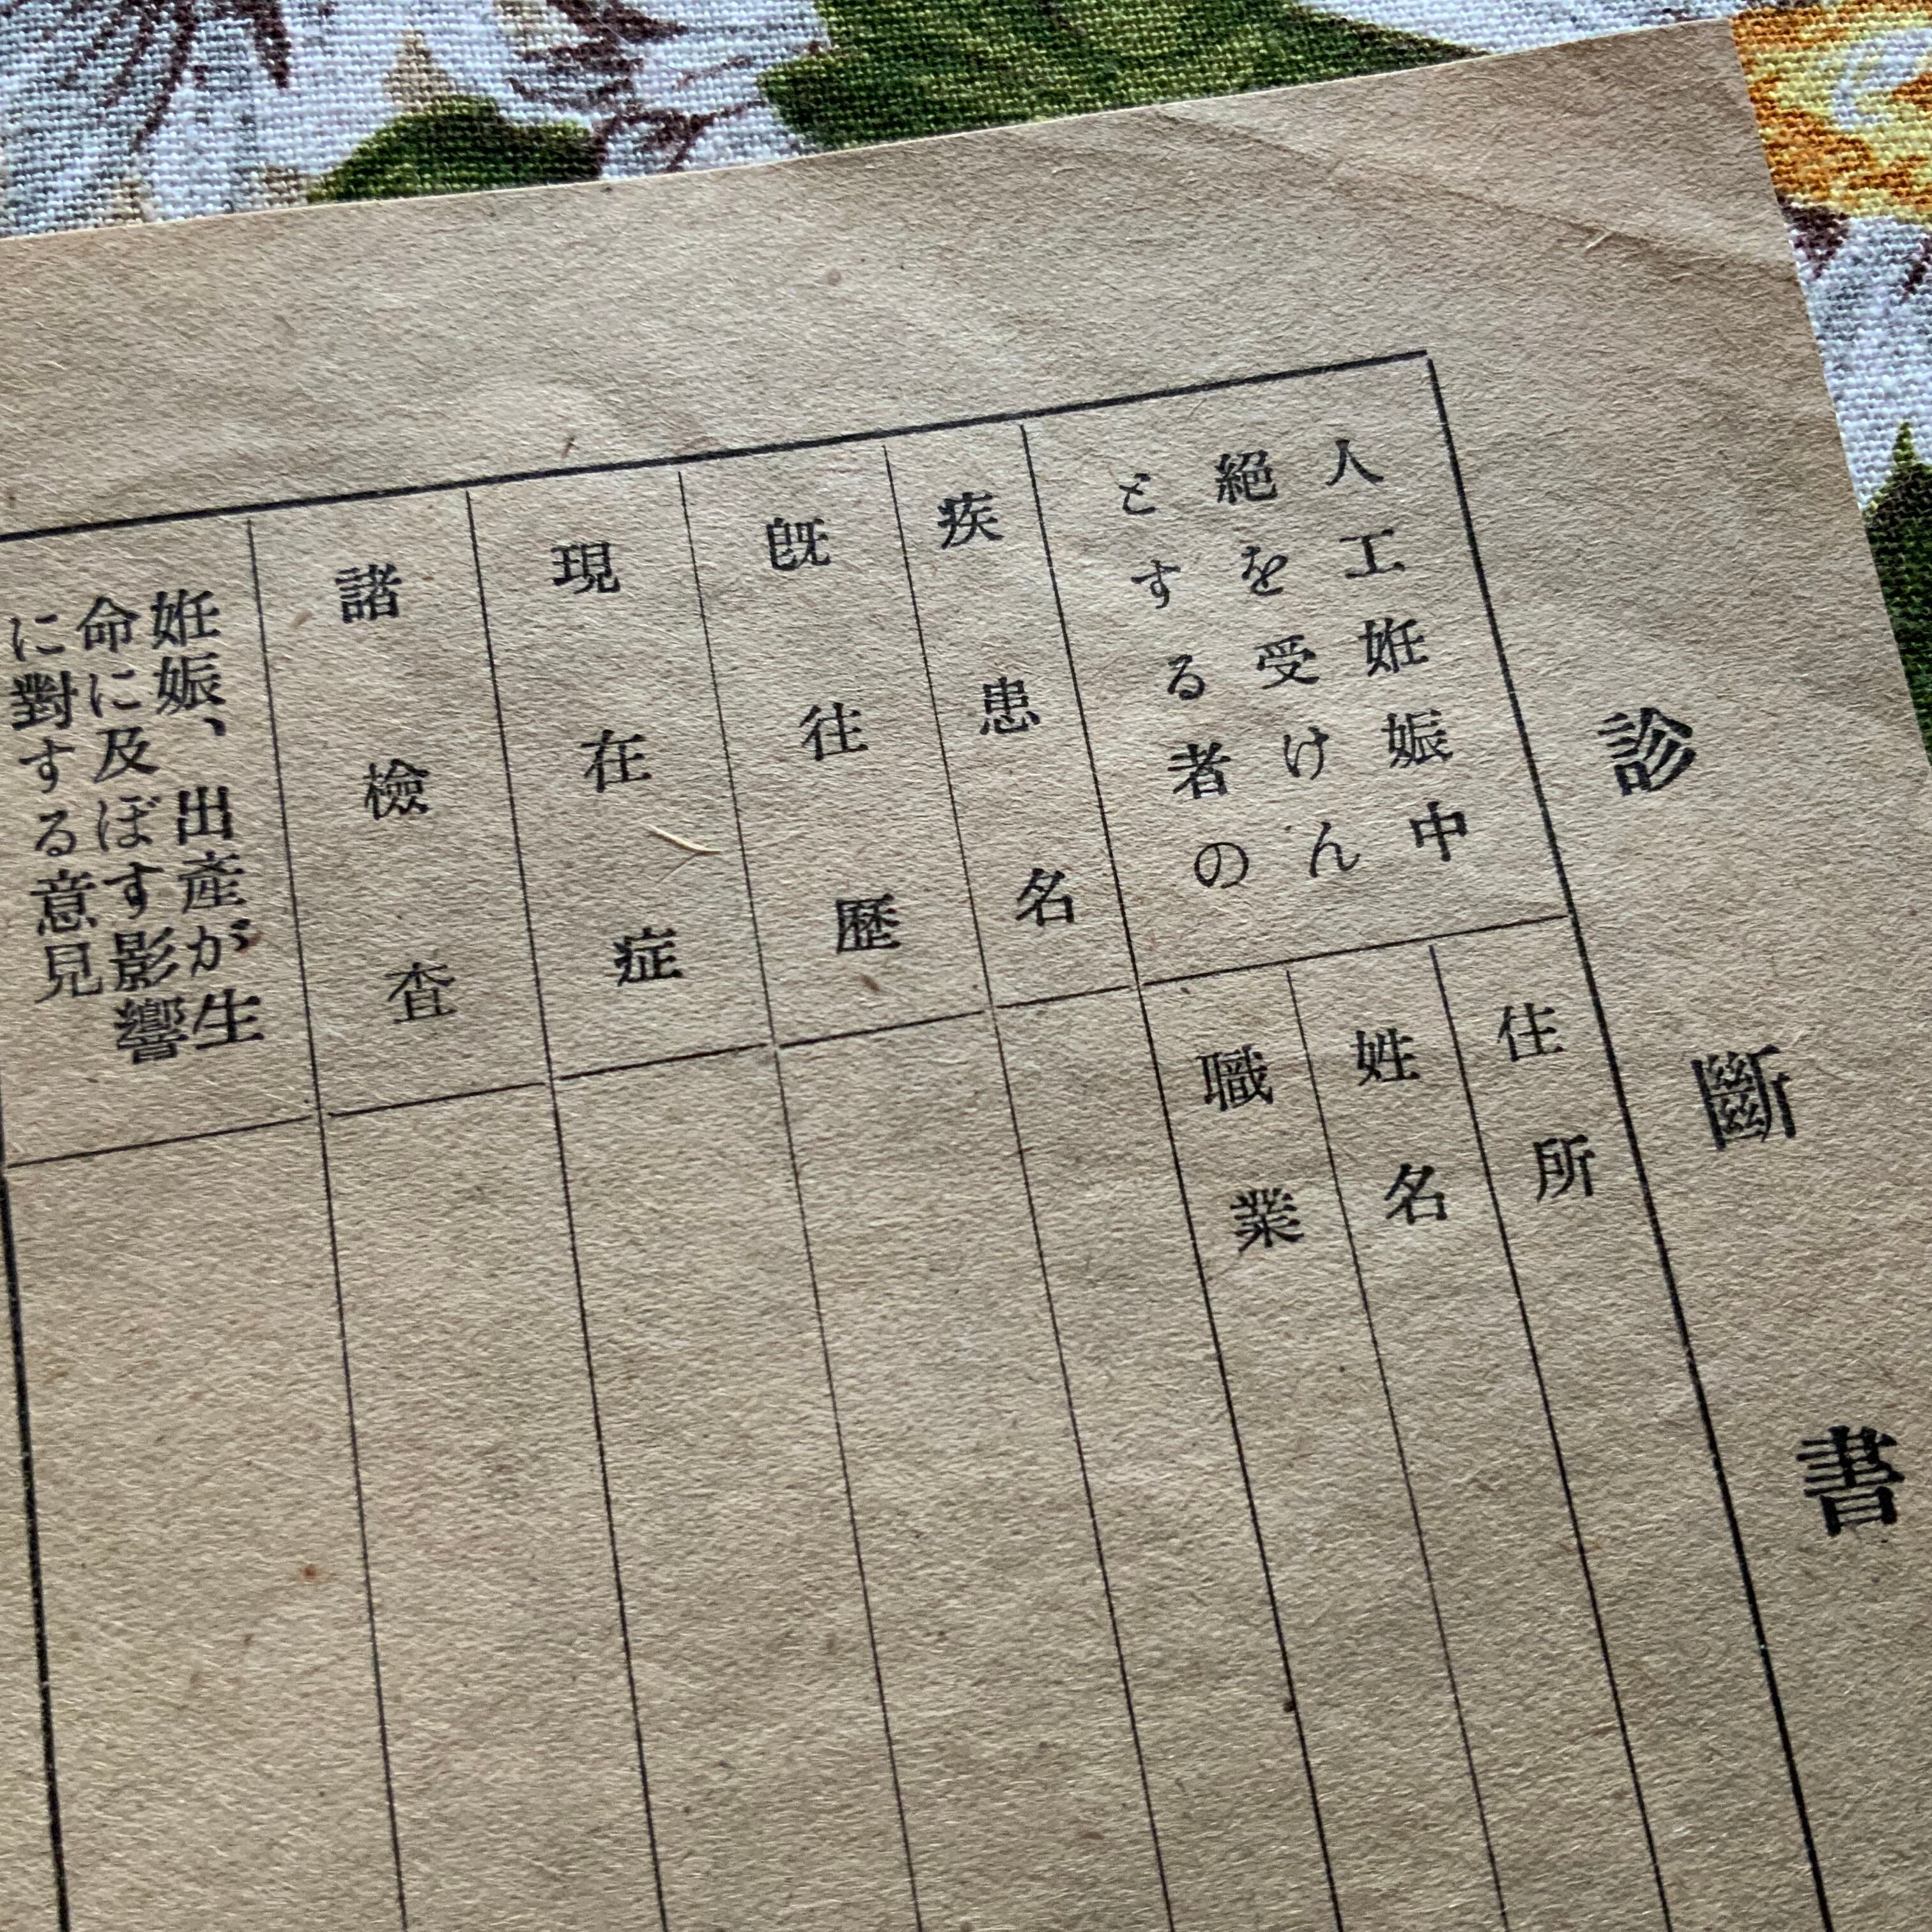 診斷書
人工姙娠中
絕を受けん
とする者の
住所
姓名
職業
疾患名
既往歷
現在症
諸檢査
姙娠、出產が生
命に及ぼす影響
に對する意見